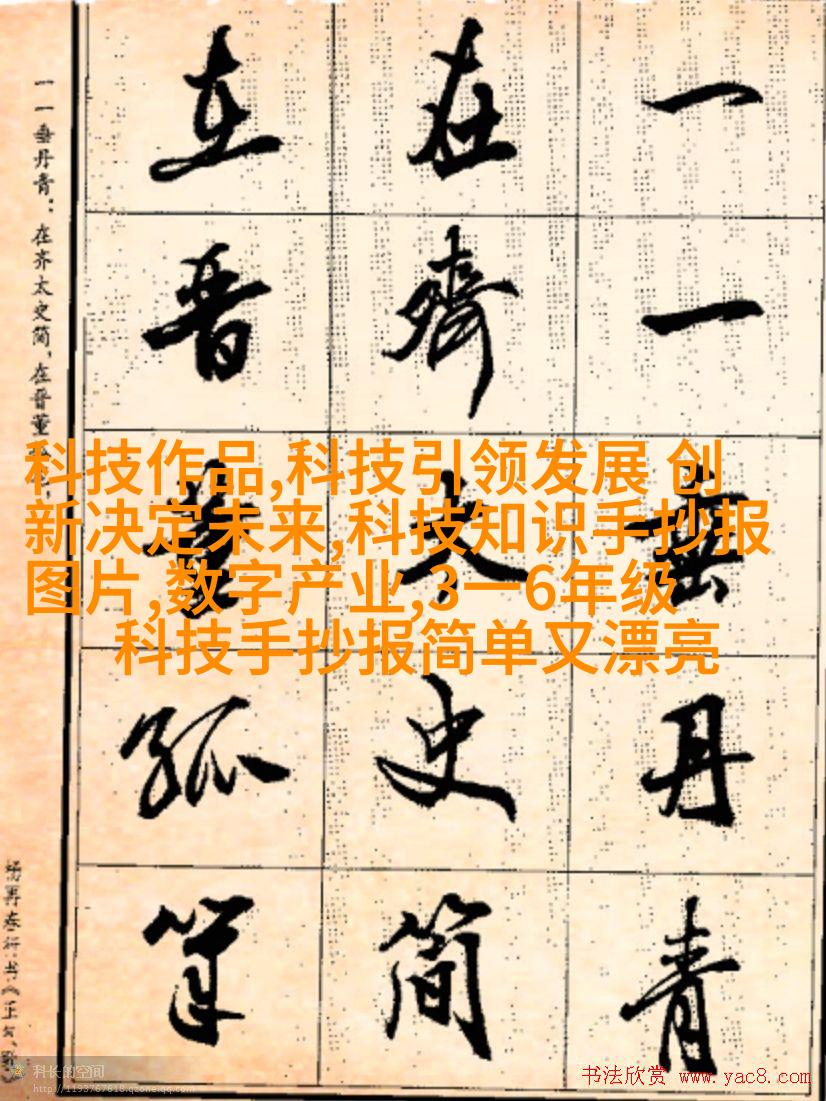 一一垂丹青
在齊太史简
在晋董狐筆
一一垂丹青：在齐太史简，在晋董
杨再春行书《正气
科技作品,科技引领发展 创
新决定未来,科技知识手抄报
图片,数字产业,3一6年级
科技手抄报简单又漂亮
科长的空间
http://1193767618.qzone.qq.com
书法欣赏 www.yac8.com